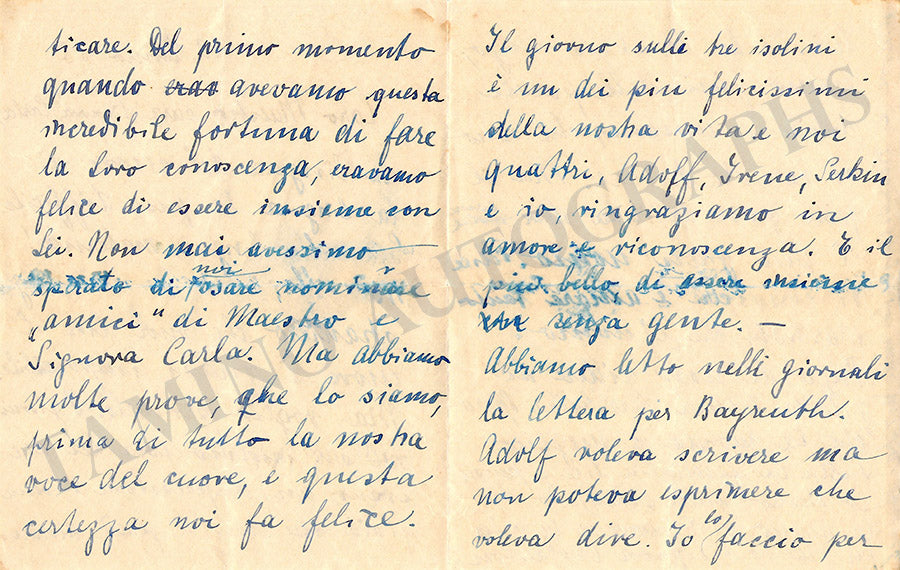 ticare. Del primo momento
quando erao avevamo questa
incredibile fortuna di fare
la Loro conoscenza, eravamo
felice di essere insieme con
Lei. Non mai avessimo
sperato di noi osare nominare
„amici" di Maestro e
Signora Carla. Ma abbiamo
molte prove, che lo siamo,
prima di tutto la nostra
voce del cuore, e questa
certezza noi fa felice.
Il giorno sulle tre isolini
è un dei piu felicissimi
della nostra vita e noi
quattri, Adolf, Irene, Serkin
e io, ringraziamo in
amore e riconoscenza. E il
piu bello di essere insieme
senza gente. —
Abbiamo letto nelli giornali
la lettera per Bayreuth.
Adolf voleva scrivere ma
non poteva esprimere che
voleva dire. Io lo faccio per
TAMINO AUTOGRAPHS